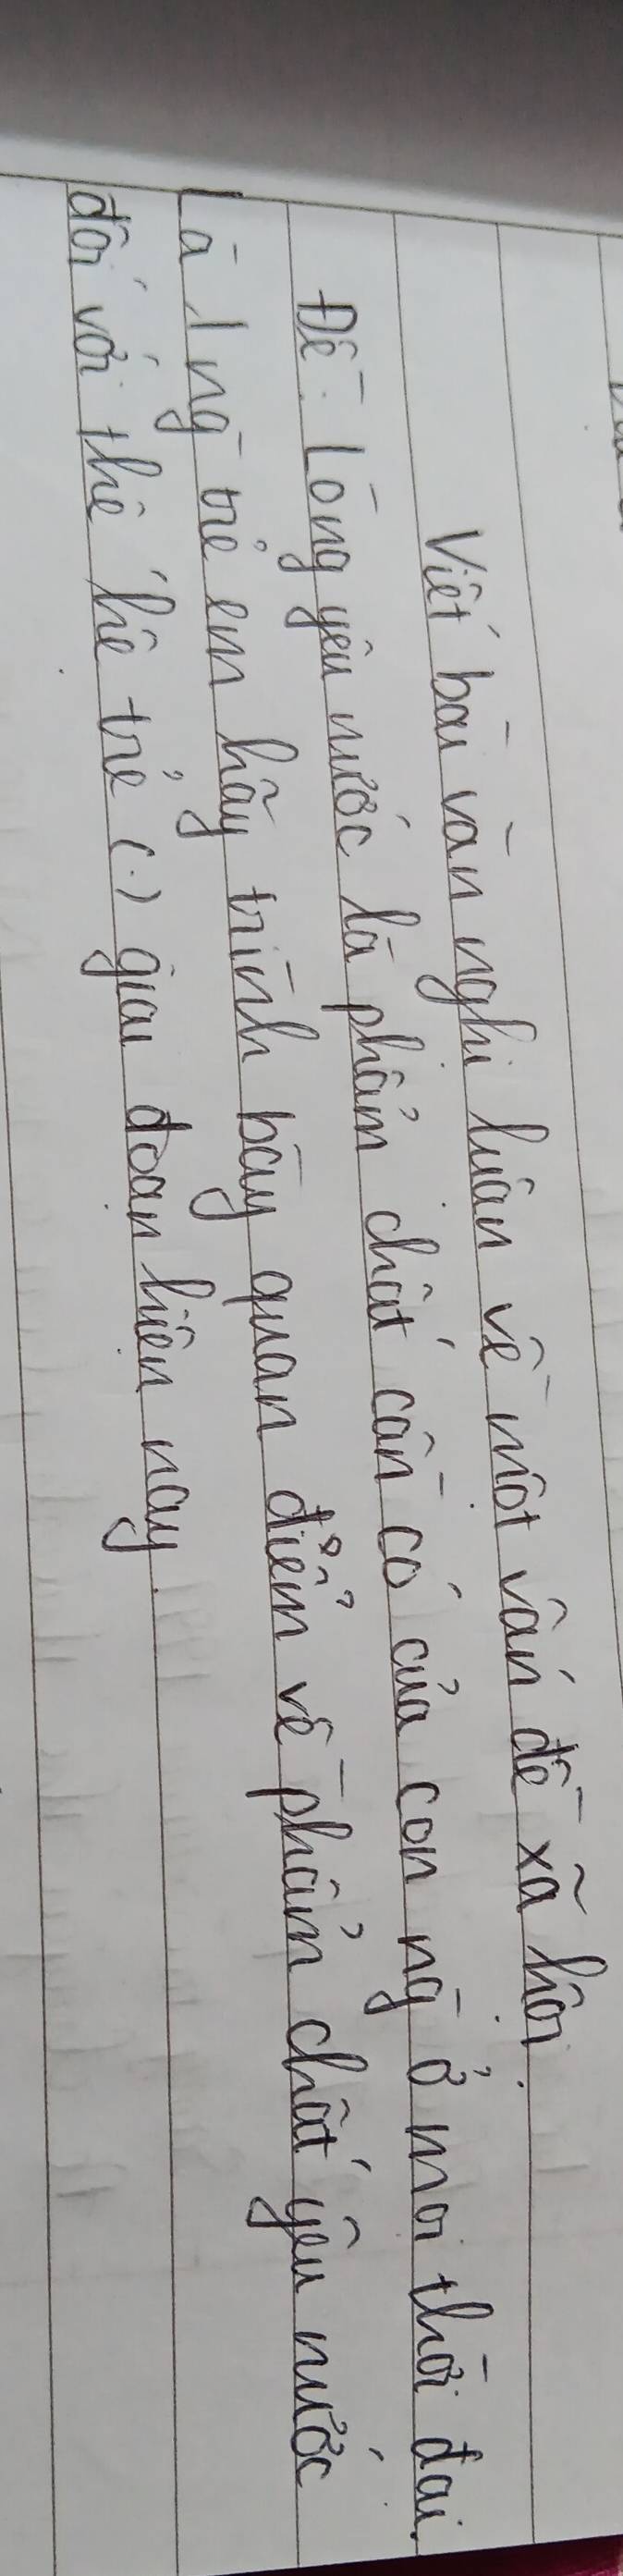 Viết bài văn nghị luận về một vấn đề xã hội.
Đề: Lòng yêu nước là phẩm chất cần có của con ng̀ ở mọi thời đại.
Là 1 ng̀ trẻ em hãy trình bày quan điểm về phẩm chất yêu nước
đối với thế hệ trẻ (.) giai đoạn hiện nay.